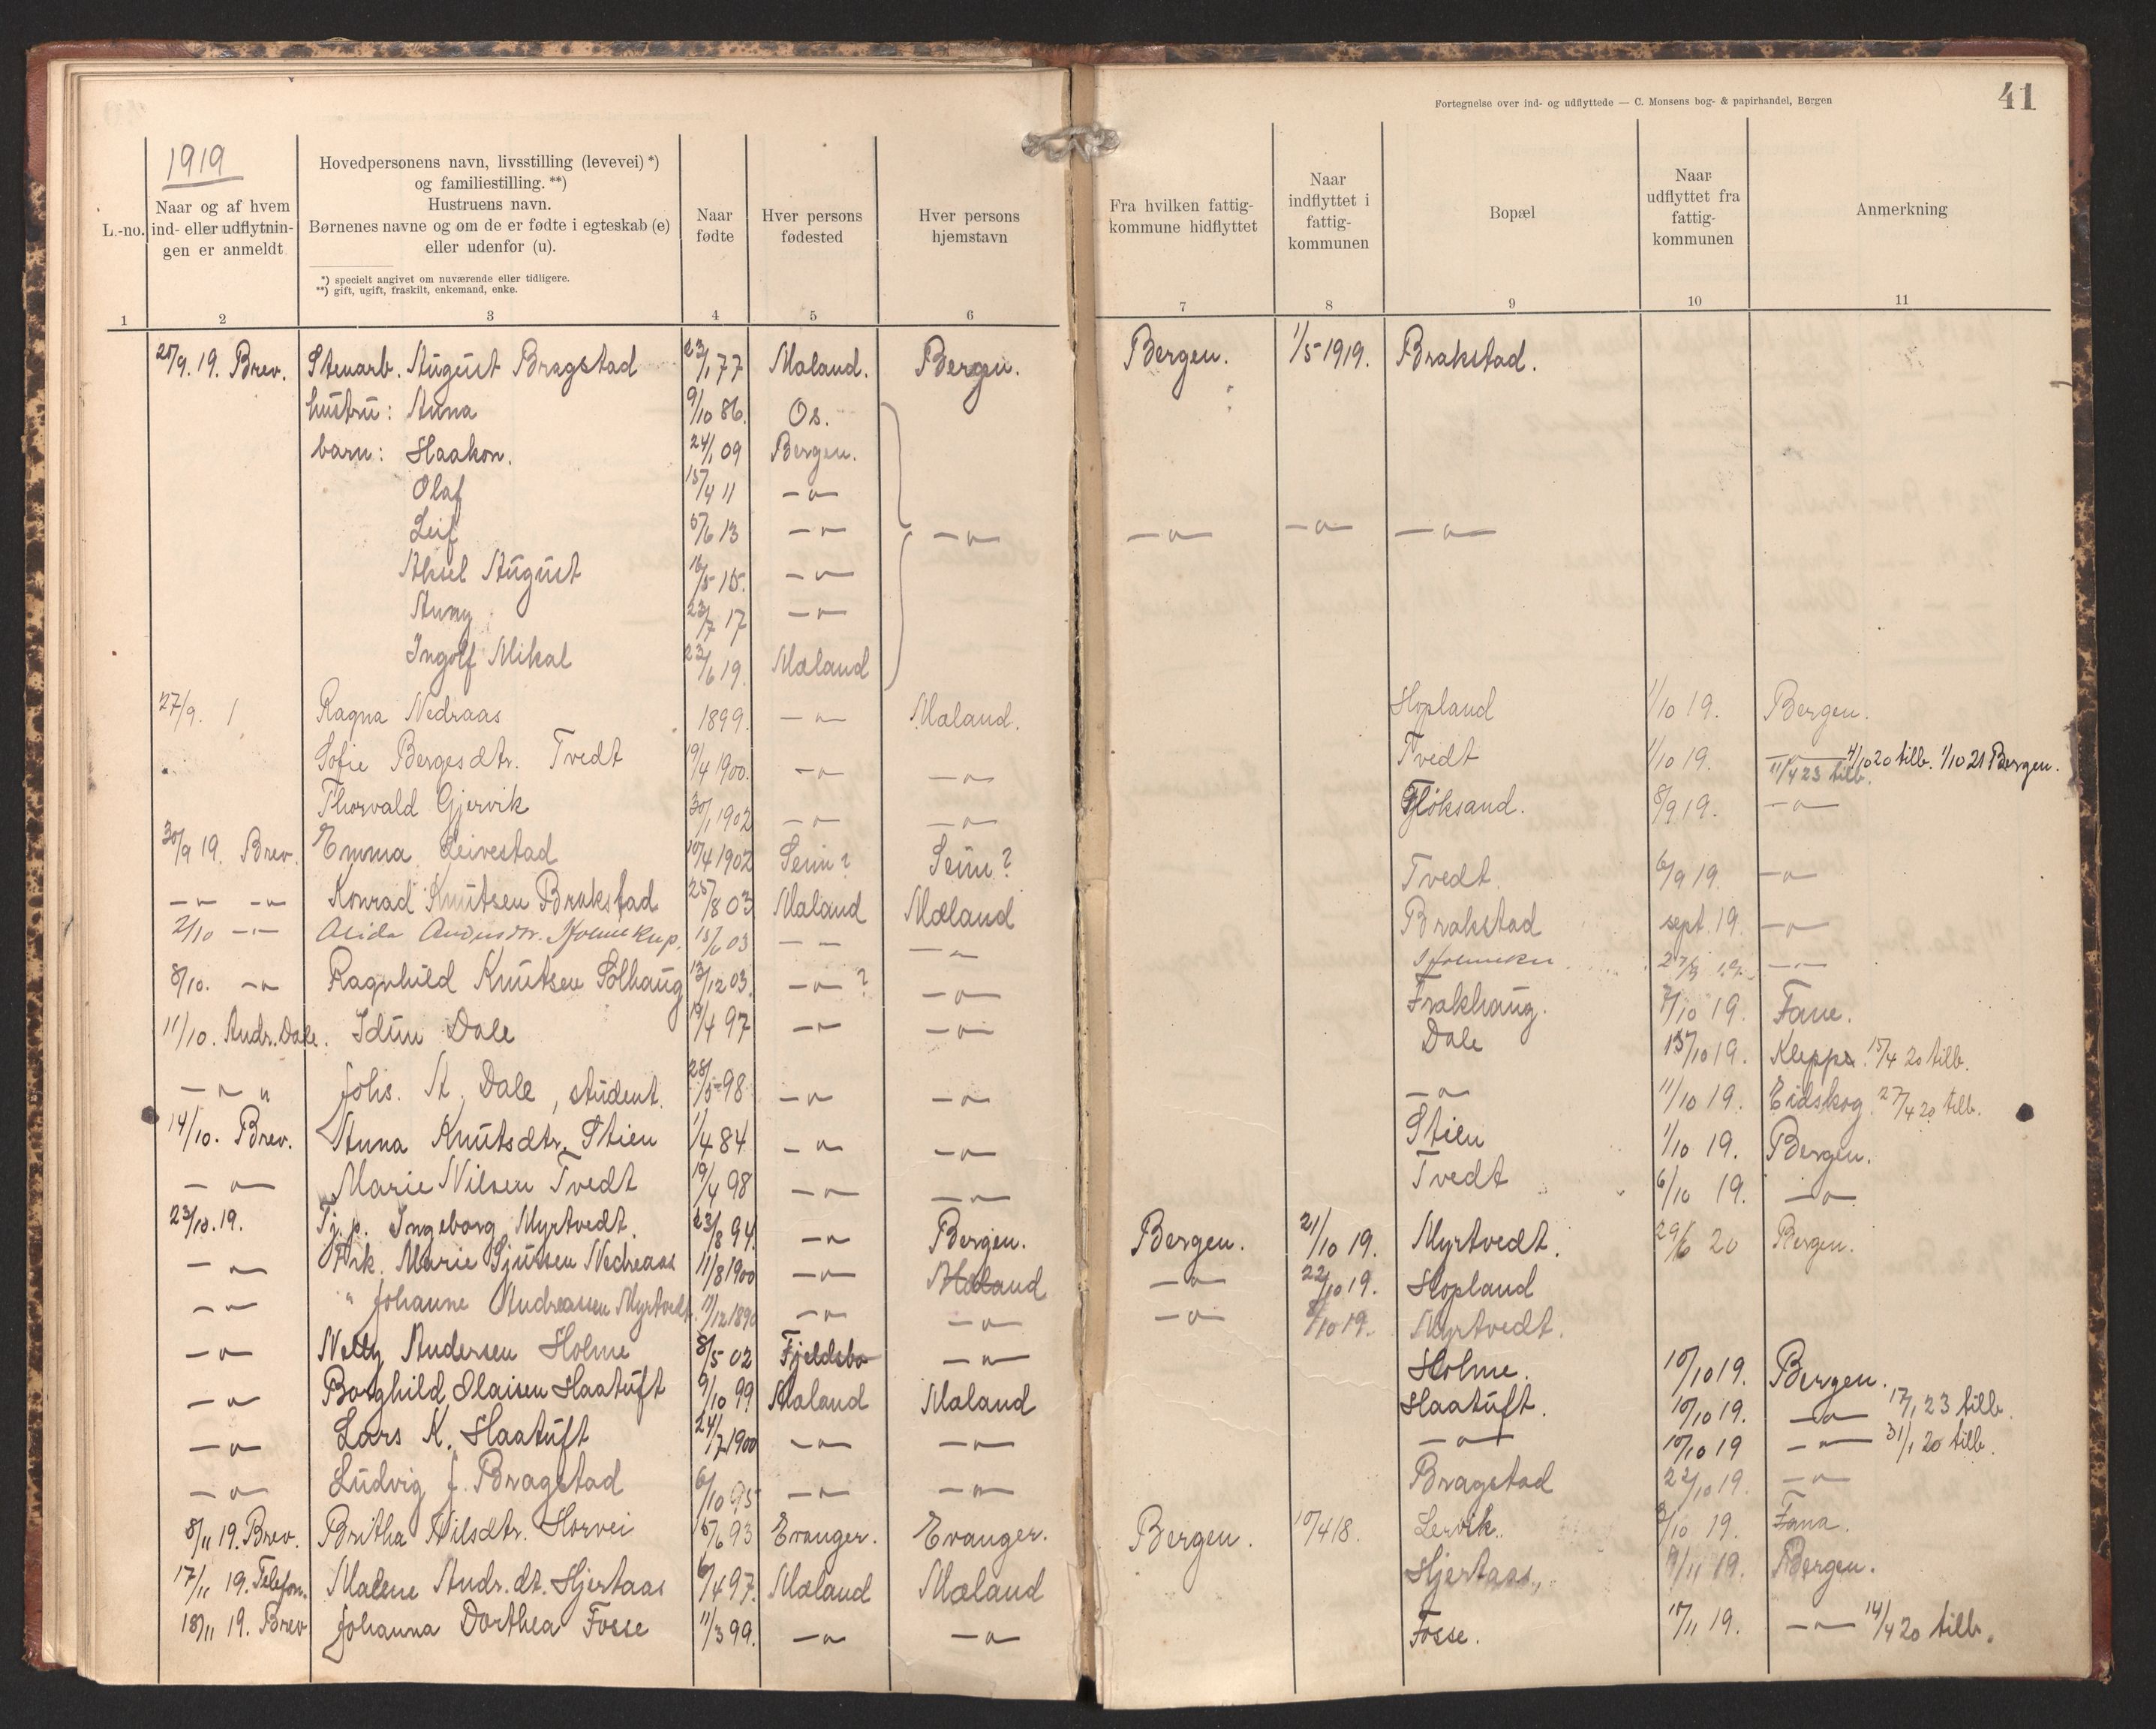 Fortegnelse over ind- og udflyttede — C. Monsens bog- & papirhandel, Bergen
41
1919
L.-no.
Naar og af hvem
ind- eller udflytnin-
gen er anmeldt
Hovedpersonens navn, livsstilling (levevei) *)
og familiestilling. **)
Hustruens navn.
Børnenes navne og om de er fødte i egteskab (e)
eller udenfor (u).
*) specielt angivet om nuværende eller tidligere.
**) gift, ugift, fraskilt, enkemand, enke.
Naar
fødte
Hver persons
fødested
Hver persons
hjemstavn
Fra hvilken fattig-
kommune hidflyttet
Naar
indflyttet i
fattig-
kommunen
Bopæl
Naar
udflyttet fra
fattig-
kommunen
Anmerkning
1 2 3 4 5 6 7 8 9 10 11
25/9. 19. Brev. Stenarb. August Bragstad 23/1 77 Mæland. Bergen. Bergen. 1/5 1919. Brakstad.
hustru: Anna 9/10 86. Os.
barn: Haakon. 24/1 09 Bergen.
Olaf 15/4 11 —"—
Leif 5/6 13 —"— —"— —"— —"— —"—
Aksel August 16/5 15. —"—
Anny 23/7 17 —"—
Ingolf Mikal 23/6 19. Mæland
27/9. Ragna Nedraas 1899. —"— Mæland. Hopland 1/10 19. Bergen.
Sofie Bergesdtr. Tvedt 19/4 1900. —"— —"— Tvedt 1/10 19. —"— 4/10 20 tilb. 1/10 21 Bergen.
11/4 23 tilb.
Thorvald Gjervik 30/1 1902 —"— —"— Fløksand. 8/9 19. —"—
30/9 19. Brev. Emma Leivestad 10/4 1902 Seim? Seim? Tvedt. 6/9 19. —"—
—"— —"— Konrad Knutsen Brakstad 25/8 03 Mæland Mæland Brakstad sept. 19. —"—
2/10 —"— Alida 15/6 03 —"— —"— —"—
8/10. —"— Ragnhild Knutsen Solhaug 13/12 03. —"— ? —"— Frakhaug. 7/10 19. Fane.
11/10. Andr. Dale. Idun Dale 19/4 97 —"— —"— Dale 15/10 19. Kleppe. 15/4 20 tilb.
—"— " Johs. A. Dale, student. 28/5 98 —"— —"— —"— 11/10 19. Eidskog. 27/4 20 tilb.
14/10. Brev. Anna Knutsdtr. Stien 1/4 84 —"— —"— Stien 1/10 19. Bergen.
—"— Marie Nilsen Tvedt 19/4 98 —"— —"— Tvedt 6/10 19. —"—
23/10. 19. Tj.p. Ingeborg Myrtvedt. 23/8 94. —"— Bergen. Bergen. 21/10 19. Myrtvedt. 29/6 20 Bergen.
—"— Frk. Marie Sjursen Nedreaas 11/8 1900 —"— Mæland —"— 22/10 19. Hopland
—"— " Johanne Andreassen Myrtvedt. 11/12 1890 —"— —"— —"— 8/10 19. Myrtvedt.
—"— Nelly Andersen Holme 8/5 02 Fjeldsbø —"— Holme. 10/10 19. Bergen.
—"— Borghild Olaisen Haatuft 9/10 99 Mæland Mæland Haatuft. 10/10 19. —"— 17/1 23 tilb.
—"— Lars K. Haatuft 24/7 1900 —"— —"— —"— 10/10 19 —"— 31/1 20 tilb.
—"— Ludvig J. Bragstad 6/10 95 —"— —"— Bragstad 22/10 19. —"—
8/11 19. Brev. Britha Nilsdtr. Horvei 15/6 93 Evanger. Evanger. Bergen. 10/4 18. Lervik. 3/10 19. Fana.
17/11 19. Telefon. Malene Andr. dt. Hjertaas 6/4 97. Mæland Mæland Hjertaas, 9/11 19. Bergen.
18/11 19. Brev Johanna Dorthea Fosse 11/3 99. —"— —"— Fosse. 10/11 19. —"— 14/4 20 tilb.